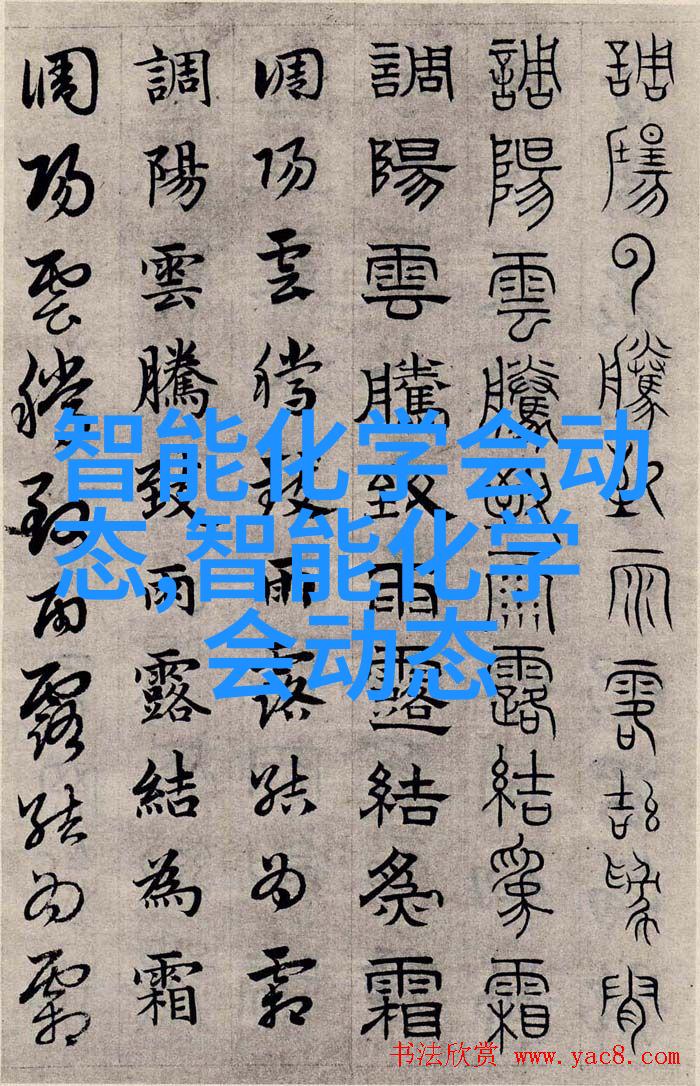 調陽雲騰致雨露結為霜
調陽雲騰致雨露結為霜
調陽雲騰致雨露結為霜
調陽雲騰致雨露結為霜
調陽雲騰致雨露結為霜
調陽雲騰致雨露結為霜
智能化学会动
态,智能化学
会动态
书法欣赏 www.yac8.com